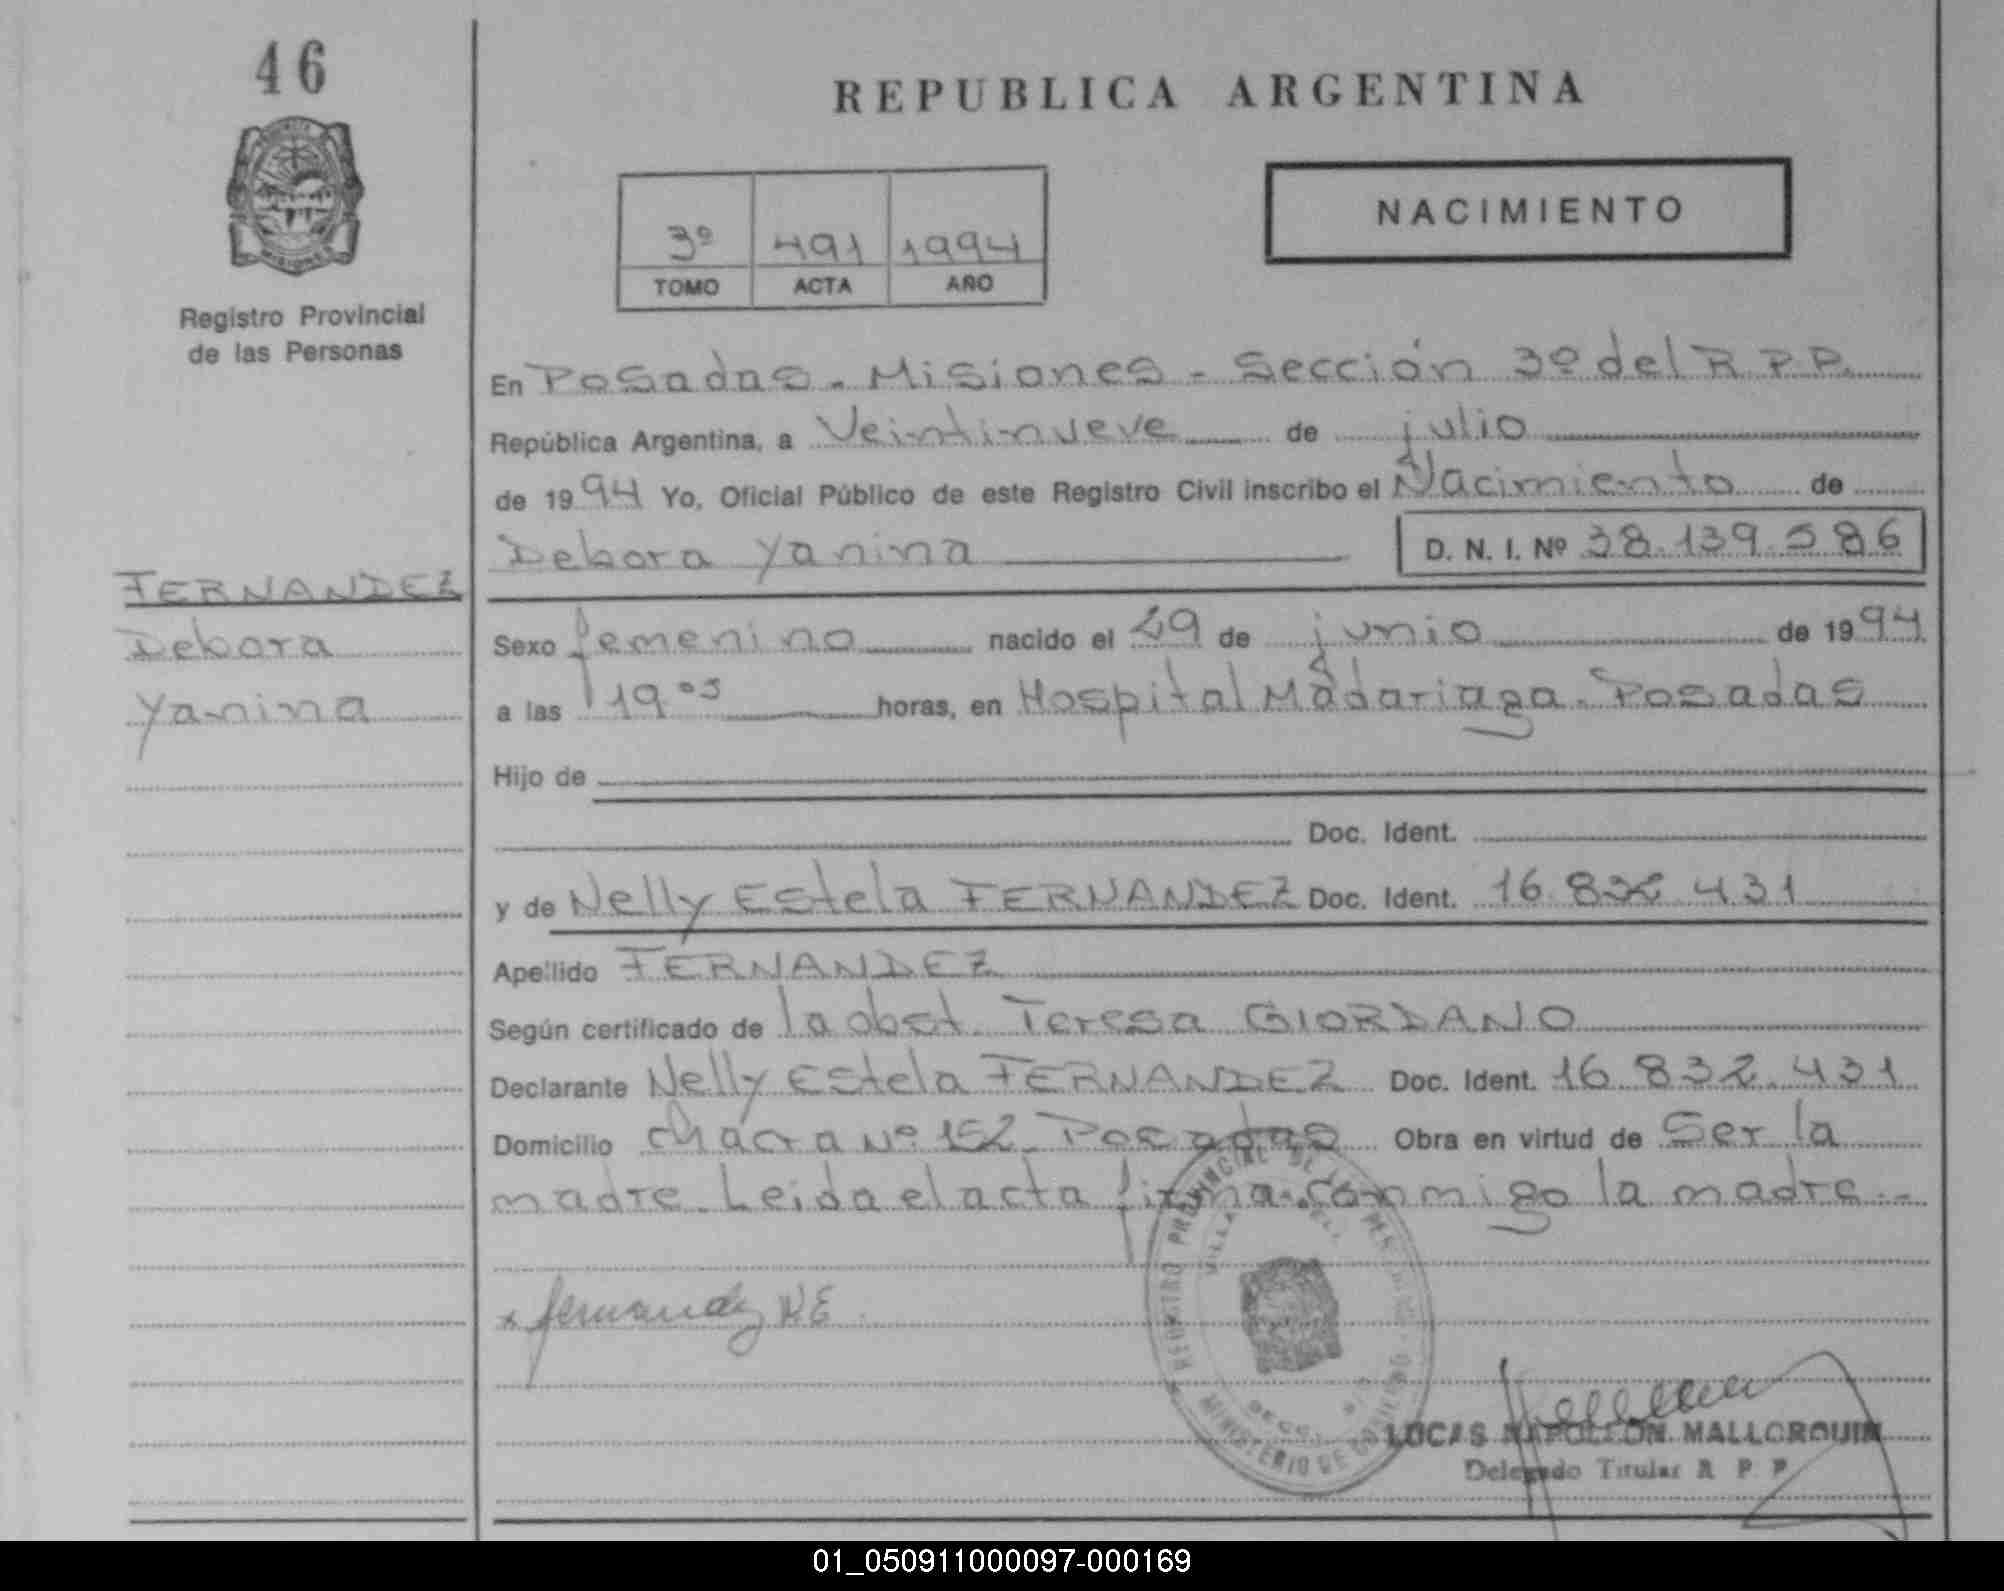 46
REPUBLICA ARGENTINA
NACIMIENTO
3º 491 1994
TOMO ACTA AÑO
Registro Provincial
de las Personas
En Posadas - Misiones - Sección 3º del R.P.P.
República Argentina, a Veintinueve de julio
de 1994 Yo, Oficial Público de este Registro Civil inscribo el Nacimiento de
Debora Yanina D. N. I. Nº 38.139.586
FERNANDEZ
Debora
Yanina
Sexo femenino nacido el 29 de junio de 1994
a las 19 05 horas, en Hospital Madariaga - Posadas
Hijo de
Doc. Ident.
y de Nelly Estela FERNANDEZ Doc. Ident. 16.832.431
Apellido FERNANDEZ
Según certificado de la obst. Teresa GIORDANO
Declarante Nelly Estela FERNANDEZ Doc. Ident. 16.832.431
Domicilio chacra Nº 152 - Posadas Obra en virtud de Ser la
madre. Leida el acta firma conmigo la madre.-
x fernandez N E
REGISTRO PROVINCIAL DE LAS PER
MINISTERIO DE GOBIERNO
LUCAS NAPOLEON MALLORQUIN
Delegado Titular R P P
01_050911000097-000169